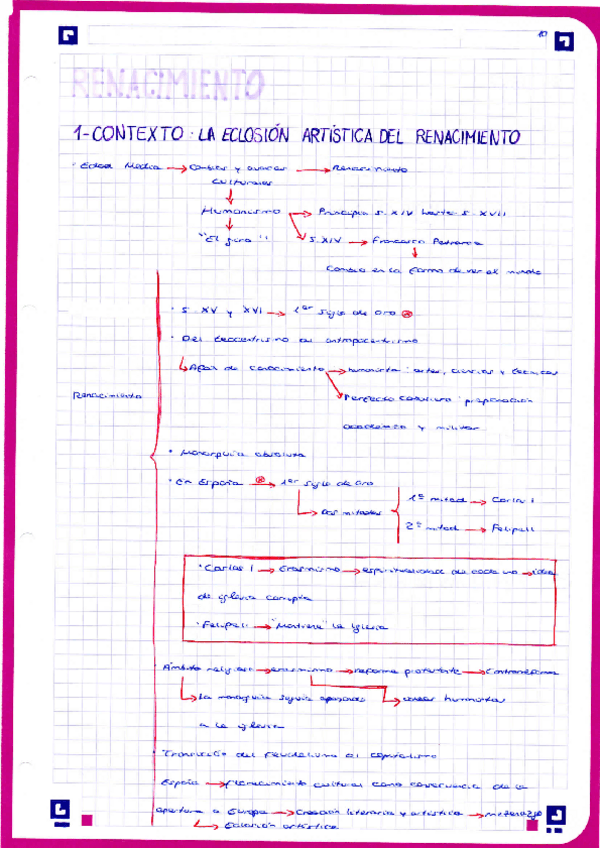 RENACIMIENTO
1-CONTEXTO: LA ECLOSIÓN ARTÍSTICA DEL RENACIMIENTO
· Edad Media → Cambios y avances → Renacimiento
culturales
Humanismo → Principios S. XIV hasta S. XVII
S. XIV → Francesco Petrarca
Cambio en la forma de ver el mundo
· S. XV y XVI → 1er Siglo de Oro
· Del teocentrismo al antropocentrismo
Afán de conocimiento → humanista: artes, ciencias y técnicas
Renacimiento
Perfecto cortesano: preparación
académica y militar
· Monarquía absoluta
· En España → 1er Siglo de Oro
1ª mitad → Carlos I
→ Dos mitades
2ª mitad → Felipe II
· Carlos I → Erasmismo → espiritualidad de cada uno → idea
de iglesia corrupta
· Felipe II → "Mantiene" la iglesia
Ámbito religioso → erasmismo → reforma protestante → Contrarreforma
→ La monarquía seguía apoyando
→ ideas humanistas
a la iglesia
· Transición del feudalismo al capitalismo
España → florecimiento cultural como consecuencia de la
apertura a Europa → Creación literaria y artística → mecenazgo
→ Eclosión artística